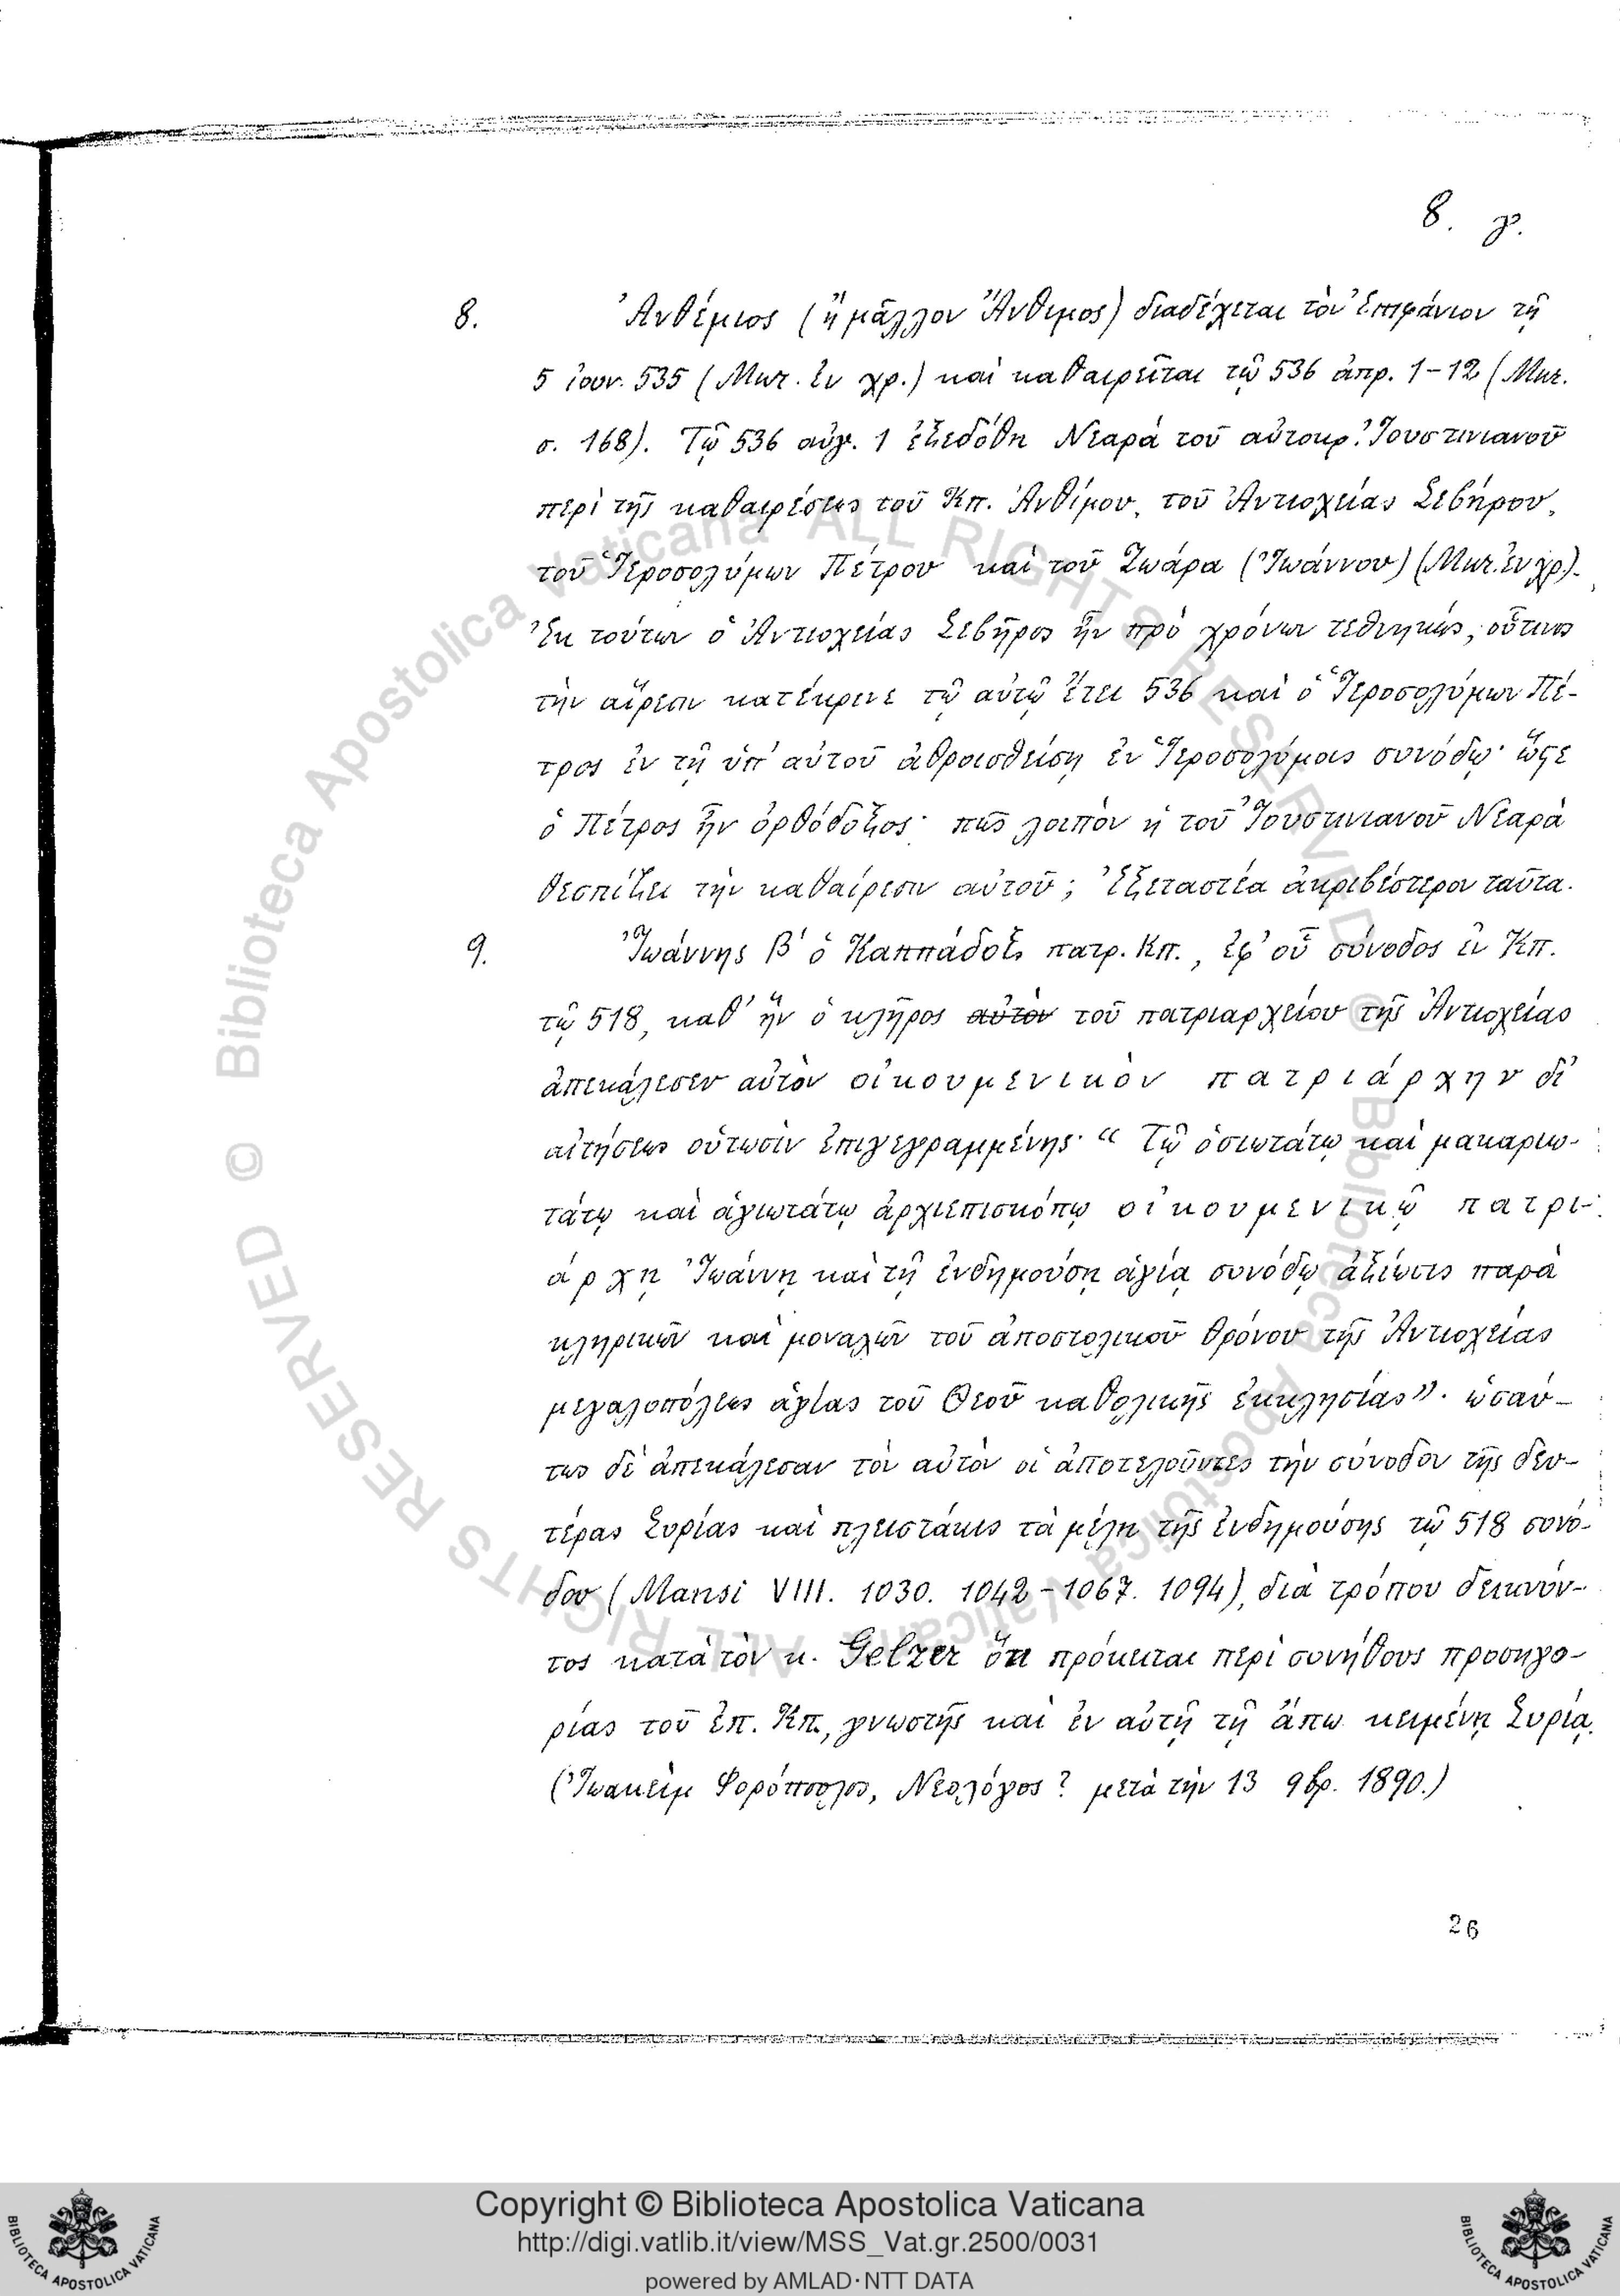 8. γ.
8. Ἀνθέμιος (ἢ μᾶλλον Ἄνθιμος) διαδέχεται τὸν Ἐπιφάνιον τῇ
5 ἰουν. 535 (Μητ. ἐν χρ.) καὶ καθαιρεῖται τῷ 536 ἀπρ. 1-12 (Μητ.
σ. 168). Τῷ 536 αὐγ. 1 ἐξεδόθη Νεαρὰ τοῦ αὐτοκρ. Ἰουστινιανοῦ
περὶ τῆς καθαιρέσεως τοῦ Κπ. Ἀνθίμου, τοῦ Ἀντιοχείας Σεβήρου,
τοῦ Ἱεροσολύμων Πέτρου καὶ τοῦ Ζωάρα (Ἰωάννου) (Μητ. ἐν χρ).
Ἐκ τούτων ὁ Ἀντιοχείας Σεβῆρος ἦν πρὸ χρόνων τεθνηκώς, οὗτινος
τὴν αἵρεσιν κατέκρινε τῷ αὐτῷ ἔτει 536 καὶ ὁ Ἱεροσολύμων Πέ-
τρος ἐν τῇ ὑπ' αὐτοῦ ἀθροισθείσῃ ἐν Ἱεροσολύμοις συνόδῳ· ὥστε
ὁ Πέτρος ἦν ὀρθόδοξος· πῶς λοιπὸν ἡ τοῦ Ἰουστινιανοῦ Νεαρὰ
θεσπίζει τὴν καθαίρεσιν αὐτοῦ; Ἐξεταστέα ἀκριβέστερον ταῦτα.
9. Ἰωάννης β' ὁ Καππάδοξ πατρ. Κπ., ἐφ' οὗ σύνοδος ἐν Κπ.
τῷ 518, καθ' ἣν ὁ κλῆρος αὐτὸν τοῦ πατριαρχείου τῆς Ἀντιοχείας
ἀπεκάλεσεν αὐτὸν οἰκουμενικὸν πατριάρχην δι'
αἰτήσεως οὑτωσὶν ἐπιγεγραμμένης· “ Τῷ ὁσιωτάτῳ καὶ μακαριω-
τάτῳ καὶ ἁγιωτάτῳ ἀρχιεπισκόπῳ οἰκουμενικῷ πατρι-
άρχῃ Ἰωάννῃ καὶ τῇ ἐνδημούσῃ ἁγίᾳ συνόδῳ ἀξίωσις παρὰ
κληρικῶν καὶ μοναχῶν τοῦ ἀποστολικοῦ θρόνου τῆς Ἀντιοχείας
μεγαλοπόλεως ἁγίας τοῦ Θεοῦ καθολικῆς ἐκκλησίας”· ὡσαύ-
τως δὲ ἀπεκάλεσαν τὸν αὐτὸν οἱ ἀποτελοῦντες τὴν σύνοδον τῆς δευ-
τέρας Συρίας καὶ πλειστάκις τὰ μέλη τῆς ἐνδημούσης τῷ 518 συνό-
δου (Mansi VIII. 1030. 1042-1067. 1094), διὰ τρόπου δεικνύν-
τος κατὰ τὸν κ. Gelzer ὅτι πρόκειται περὶ συνήθους προσηγο-
ρίας τοῦ ἐπ. Κπ., γνωστῆς καὶ ἐν αὐτῇ τῇ ἄπω κειμένῃ Συρίᾳ.
(Ἰωακεὶμ Φορόπουλος, Νεολόγος? μετὰ τὴν 13 9βρ. 1890.)
26
© Biblioteca Apostolica Vaticana ALL RIGHTS RESERVED © Biblioteca Apostolica Vaticana ALL RIGHTS RESERVED
BIBLIOTECA APOSTOLICA VATICANA
Copyright © Biblioteca Apostolica Vaticana
http://digi.vatlib.it/view/MSS_Vat.gr.2500/0031
powered by AMLAD·NTT DATA
BIBLIOTECA APOSTOLICA VATICANA